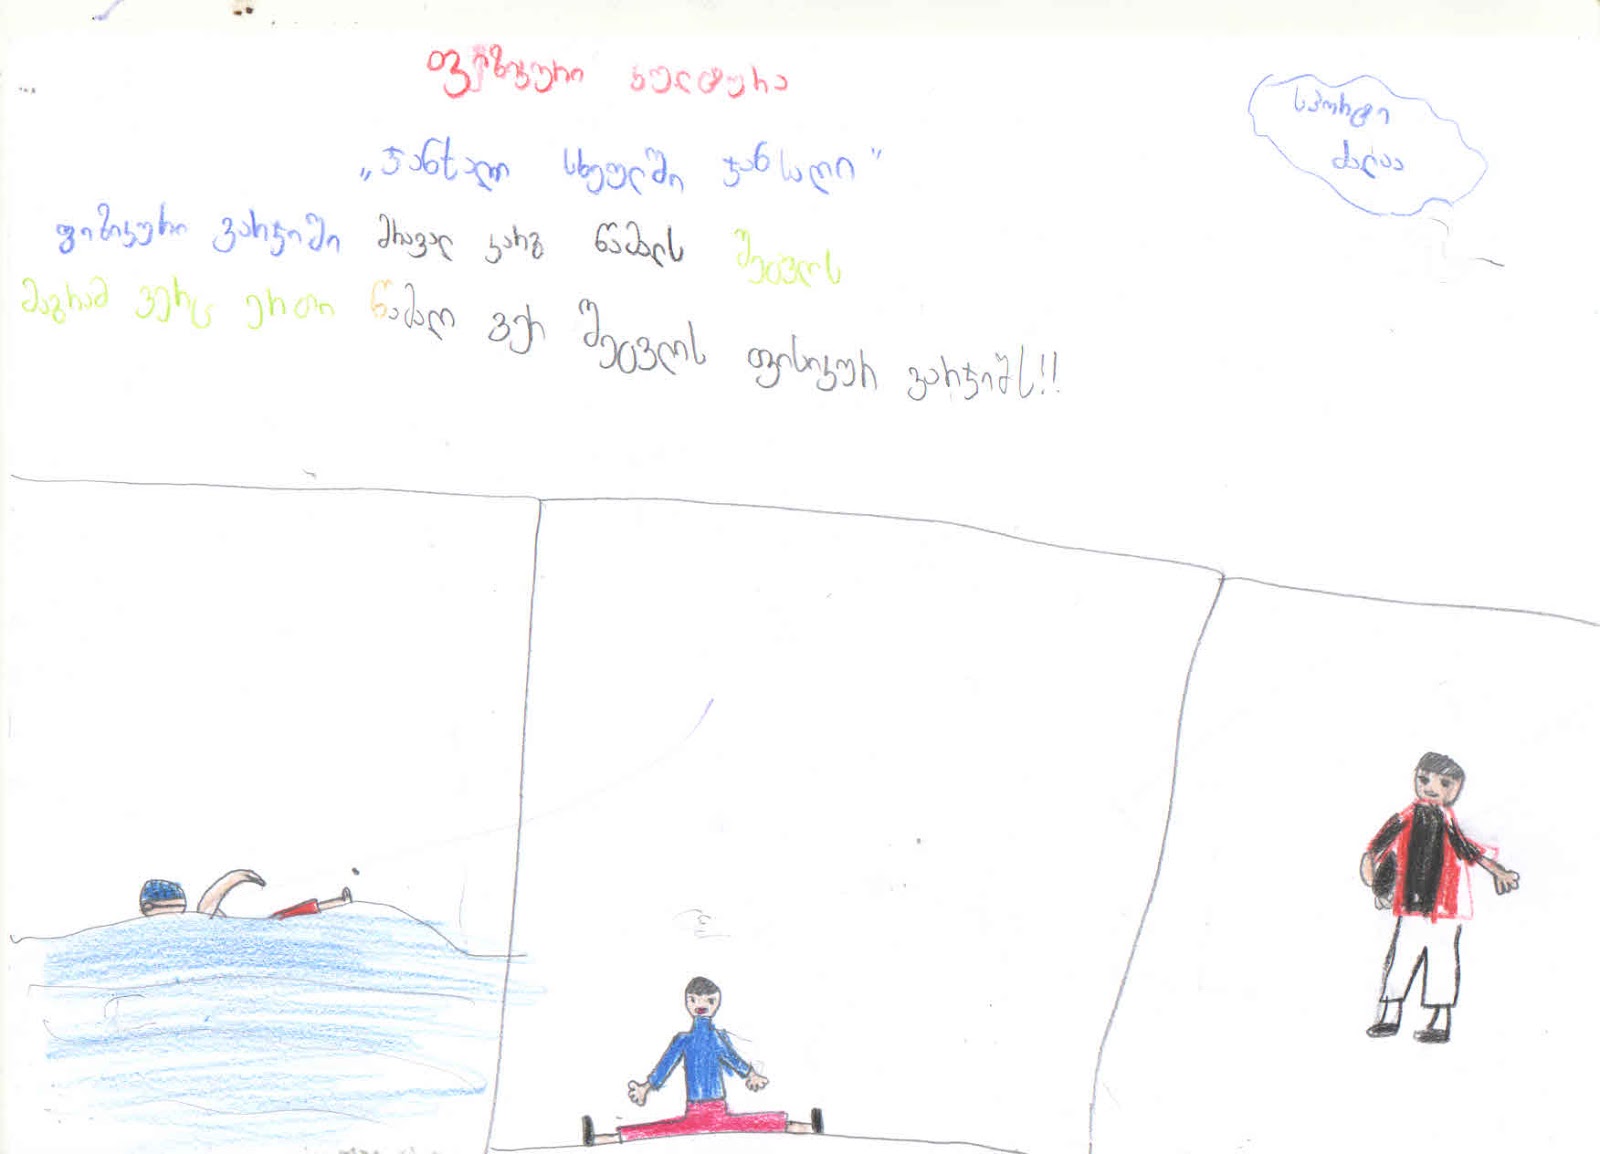 ფიზიკური კულტურა
„ჯანსაღ სხეულში ჯანსაღი"
ფიზიკური ვარჯიში მრავალ კარგ წამალს შეცვლის
მაგრამ ვერც ერთი წამალი ვერ შეცვლის ფისიკურ ვარჯიშს!!
სპორტი
ძალაა